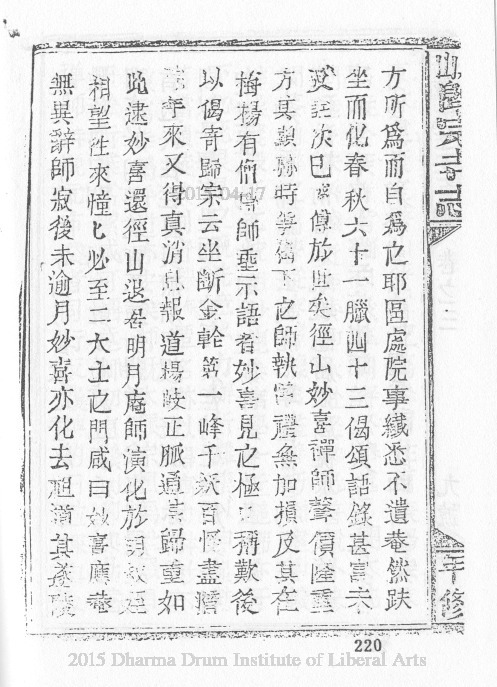 方所為而自為之耶區處院事纖悉不遺菴然趺
坐而化春秋六十一臘四十三偈頌語錄甚富未
更註次已傳於世矣徑山妙喜禪師聲價隆重
方其顯赫時爭為下之師執禮無加損及其在
梅楊有傳師垂示語者妙喜見之極口稱歎後
以偈寄歸宗云坐斷金輪第一峰千妖百怪盡潛
年來又得真消息報道楊岐正脈通其歸重如
此逮妙喜還徑山退居明月庵師演化於
相望往來憧匕必至二大士之門咸曰妙喜應菴
無異辭師寂後未逾月妙喜亦化去
卷之二
220
2015 Dharma Drum Institute of Liberal Arts